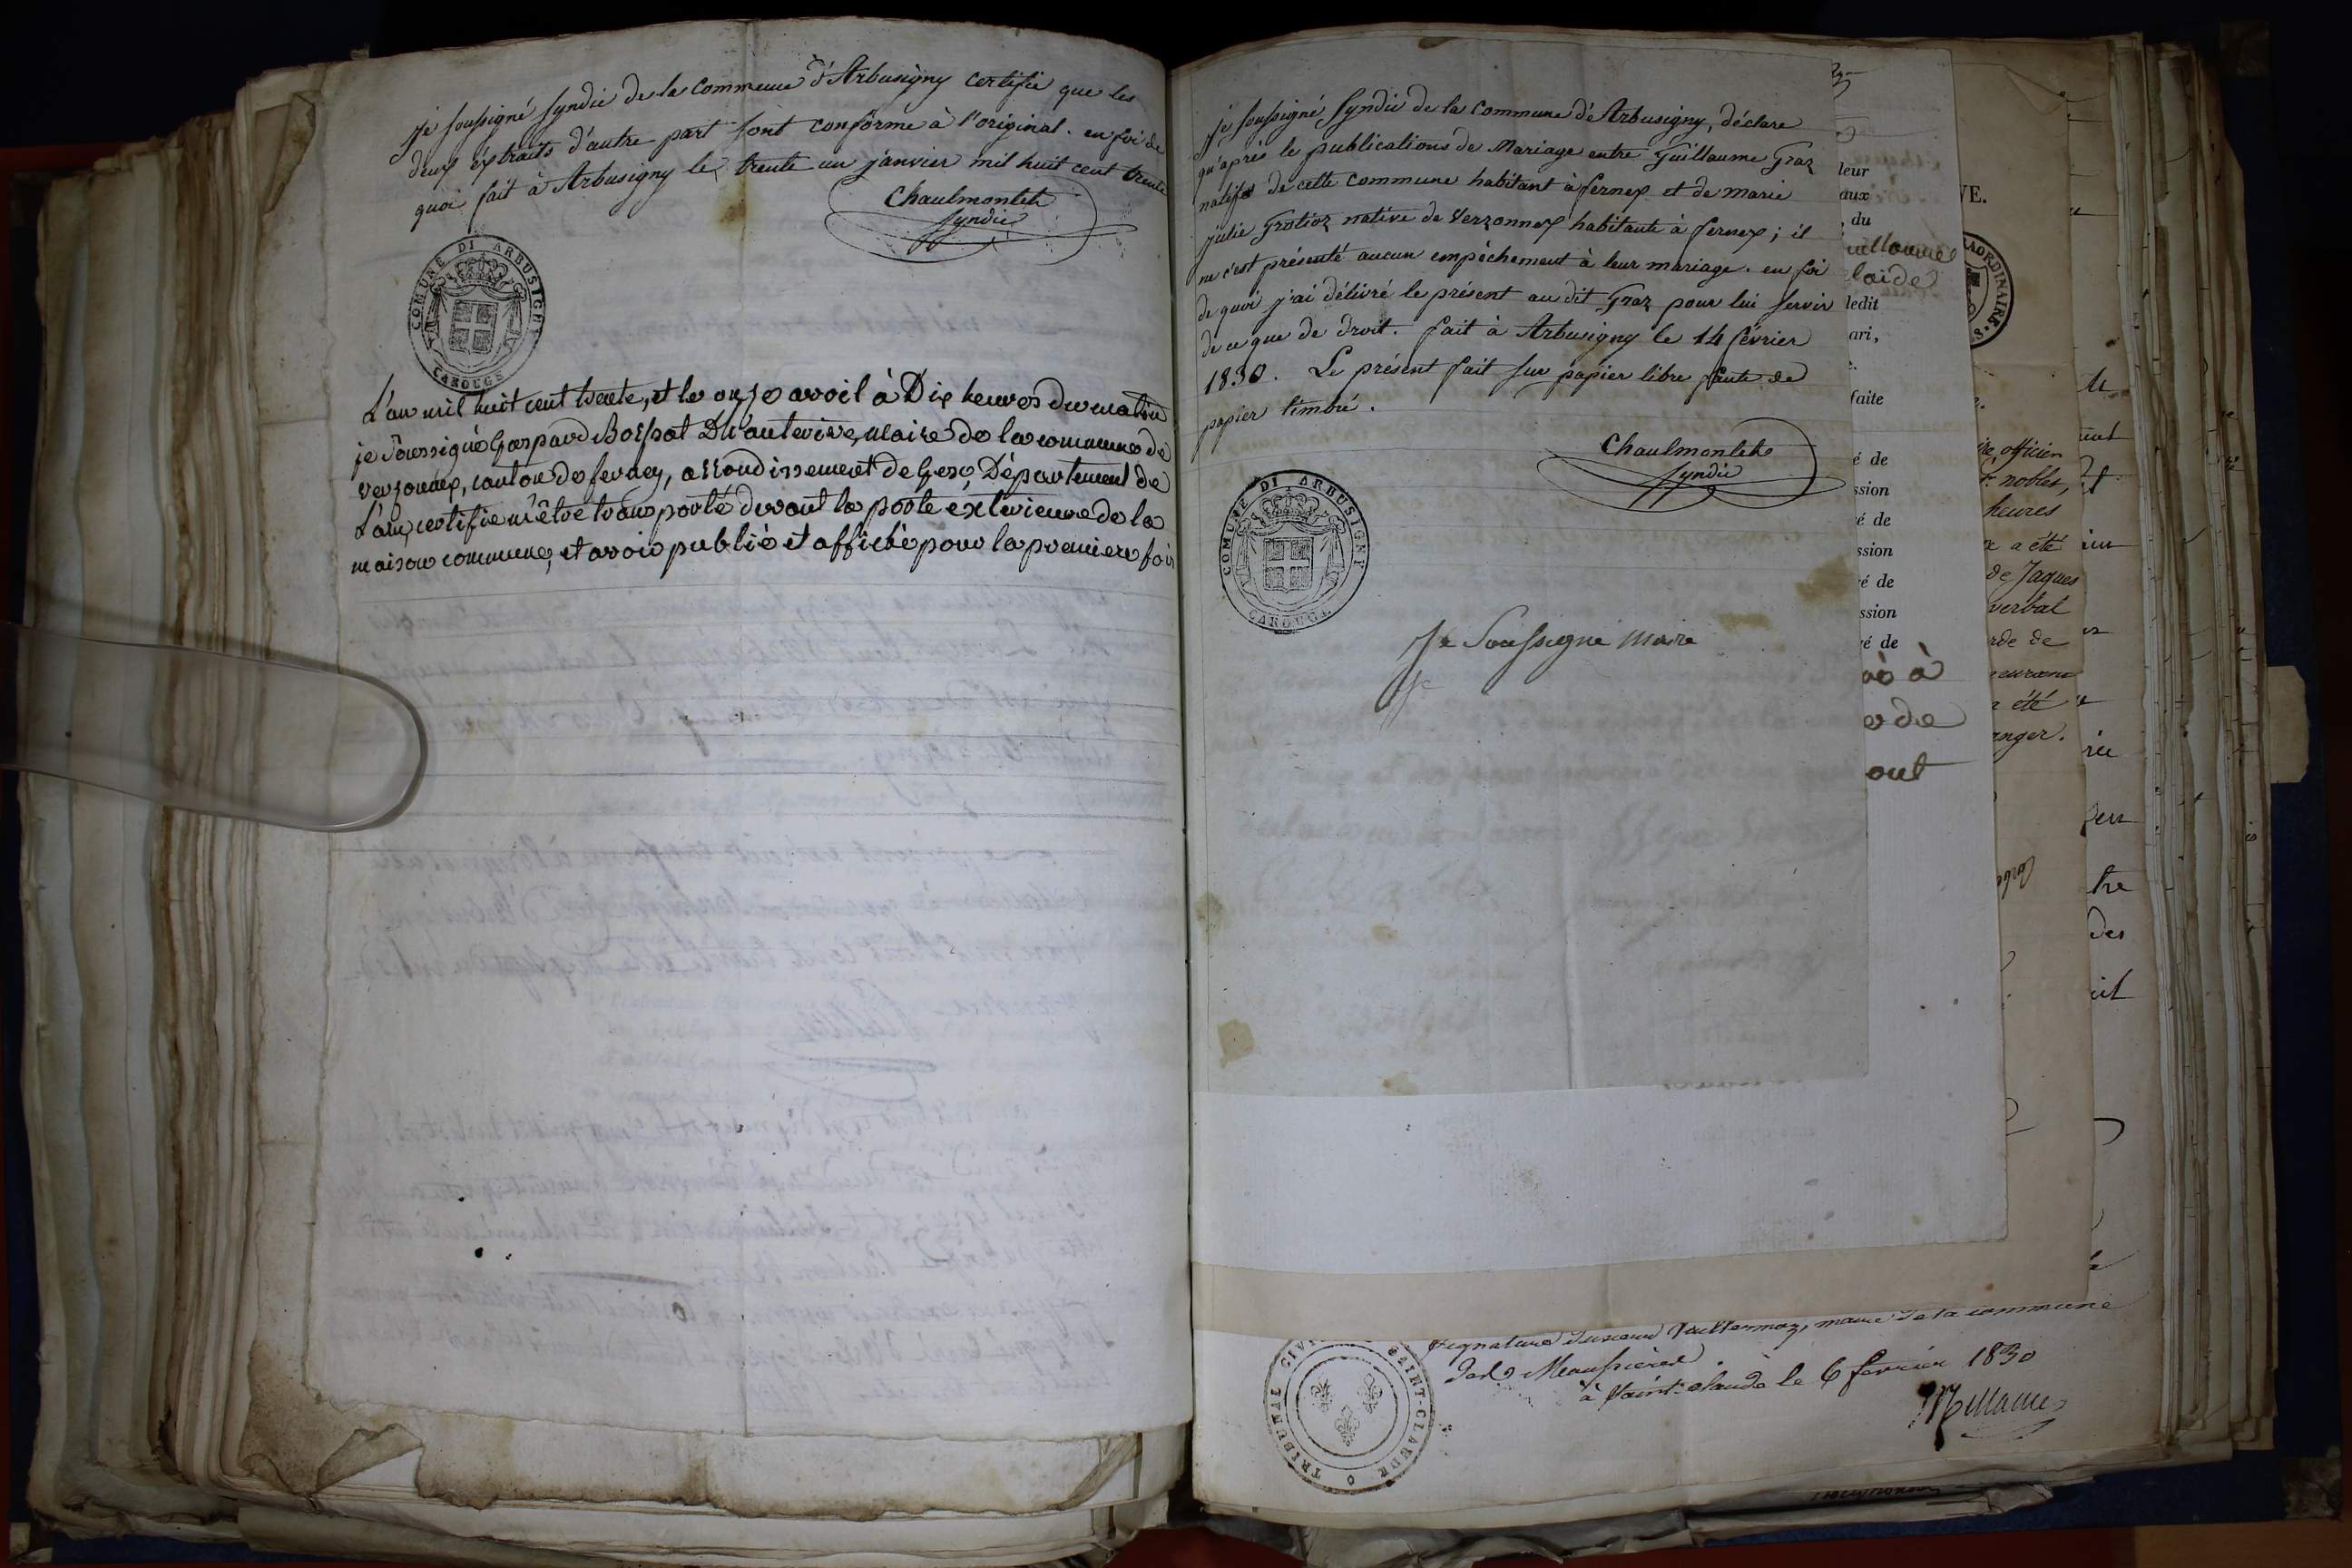 Je soussigné syndic de la commune d'Arbusigny certifie que les
deux extraits d'autre part sont conforme à l'original. en foi de
quoi fait à Arbusigny le trente un janvier mil huit cent trente
Chaulmontet
syndic
COMUNE DI ARBUSIGNY
CAROUGE
L'an mil huit cent trente, et le onze avril à Dix heures du matin
je soussigné Gaspard Bossat D'hauterive, maire de la commune de
versonnex, canton de ferney, arrondissement de Gex, Département de
L'ain, certifie m'être transporté devant la porte exterieure de la
maison commune, et avoir publié et affiché pour la premiere fois
Je soussigné syndic de la commune d'Arbusigny, déclare
qu'après le publications de Mariage entre Guillaume Graz
natif de cette commune habitant à fernex et de marie
julie Grotioz native de Verzonnex habitante à fernex; il
ne c'est présenté aucun empêchement à leur mariage. en foi
de quoi j'ai délivré le présent au dit Graz pour lui servir
de ce que de droit. fait à Arbusigny le 14 février
1830. Le présent fait sur papier libre faute de
papier timbré.
Chaulmontet
syndic
COMUNE DI ARBUSIGNY
CAROUGE
Je Soussigné maire
Je
leur
aux
du
uillaume
laide
ledit
ari,
faite
é de
ssion
é de
ssion
é de
ssion
é de
à
de
out
VE.
AORDINAIRE
officier
nobles,
heures
a été
de Jaques
verbal
rde de
été
anger.
tre
des
signature du sieur Vuillermoz, maire de la commune
des Meussières
à Saint-claude le 6 fevrier 1830
TRIBUNAL CIVI SAINT-CLAUDE